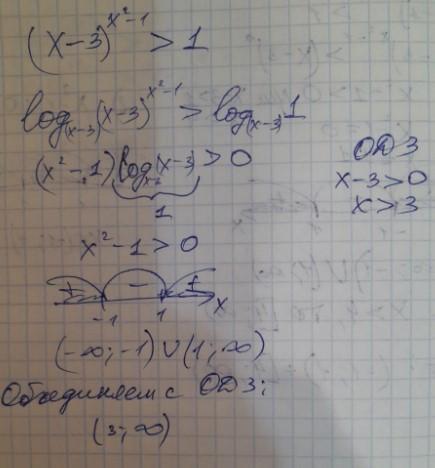 (x-3)^{x²-1} > 1
log_{(x-3)}(x-3)^{x²-1} > log_{(x-3)} 1
(x²-1) log_{x-3}(x-3) > 0
1
ОДЗ
x-3>0
x>3
x²-1>0
+ - +
-1 1 x
(-∞;-1)∪(1;∞)
Объединяем с ОДЗ:
(3;∞)